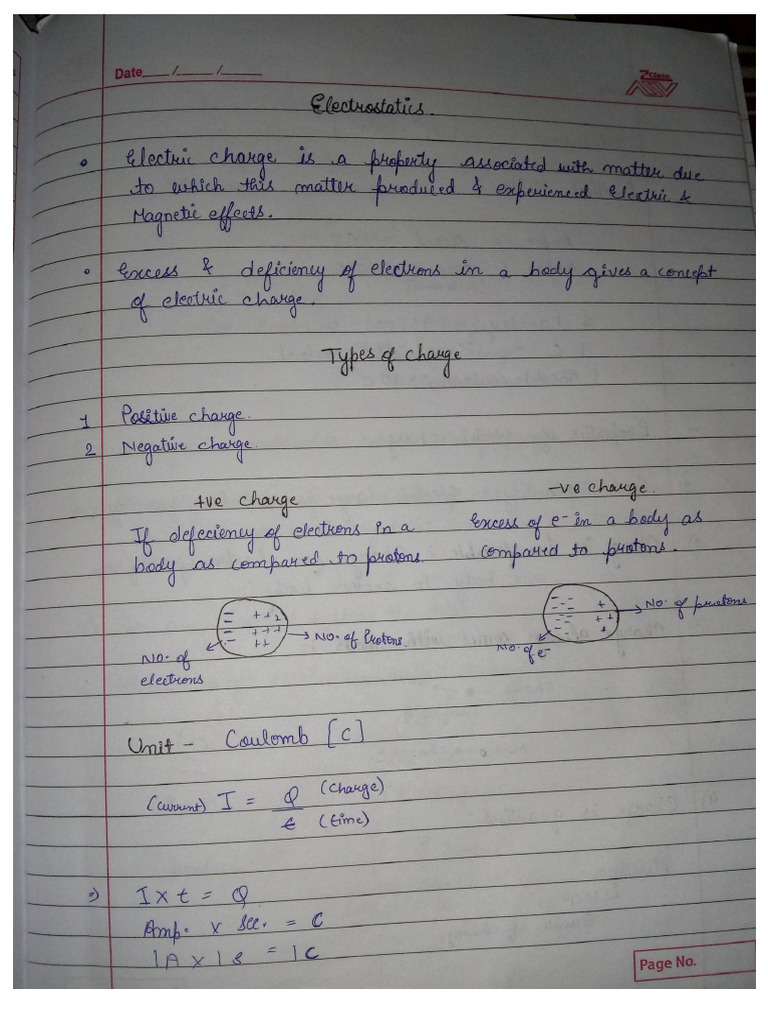 Date ___/___/___
Z Class
Electrostatics.
Electric charge is a property associated with matter due
to which this matter produced & experienced Electric &
Magnetic effects.
Excess & deficiency of electrons in a body gives a concept
of electric charge.
Types of charge
1 Positive charge.
2 Negative charge.
+ve charge
If defeciency of electrons in a
body as compared to protons.
-ve charge.
Excess of e⁻ in a body as
compared to protons.
No. of
electrons
No. of Protons.
No. of e⁻
No. of protons
Unit - Coulomb [C]
(current) I = Q (charge)
t (time)
=) I x t = Q
Amp. x Sec. = C
1A x 1s = 1C
Page No.